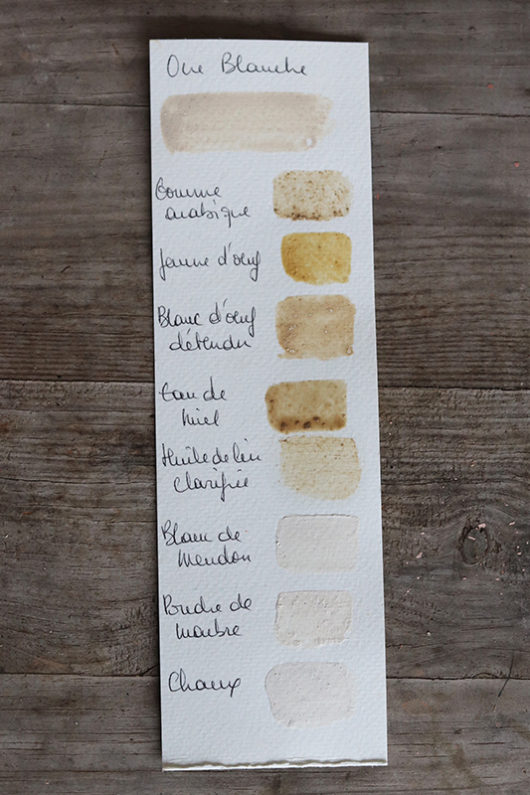 Ocre Blanche
Gomme
arabique
Jaune d'œuf
Blanc d'œuf
détendu
Eau de
miel
Huile de lin
clarifiée
Blanc de
Meudon
Poudre de
marbre
Chaux